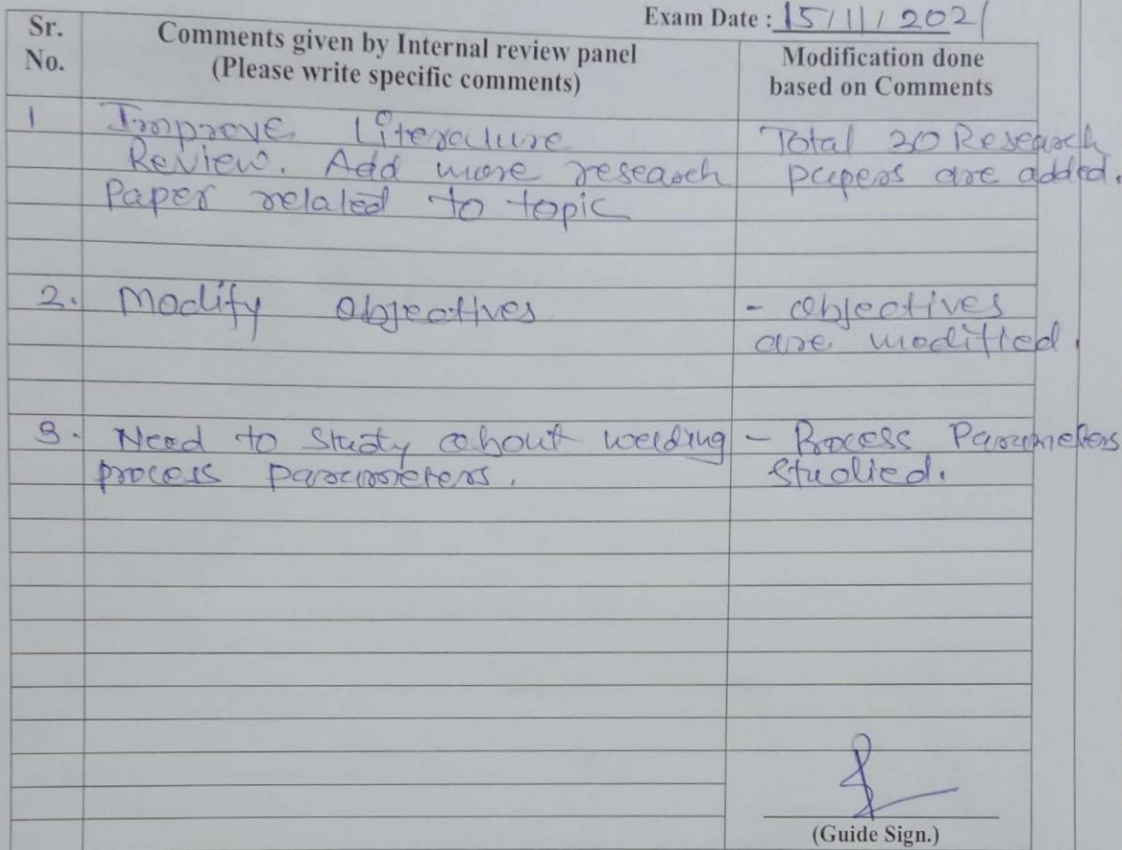 Exam Date : 15/11/2021
Sr. No.
Comments given by Internal review panel
(Please write specific comments)
Modification done
based on Comments
1 Improve Literature
Review. Add more research
Paper related to topic
Total 30 Research
papers are added.
2. Modify objectives
- objectives
are modified.
3. Need to Study about welding
process parameters.
- Process Parameters
studied.
(Guide Sign.)